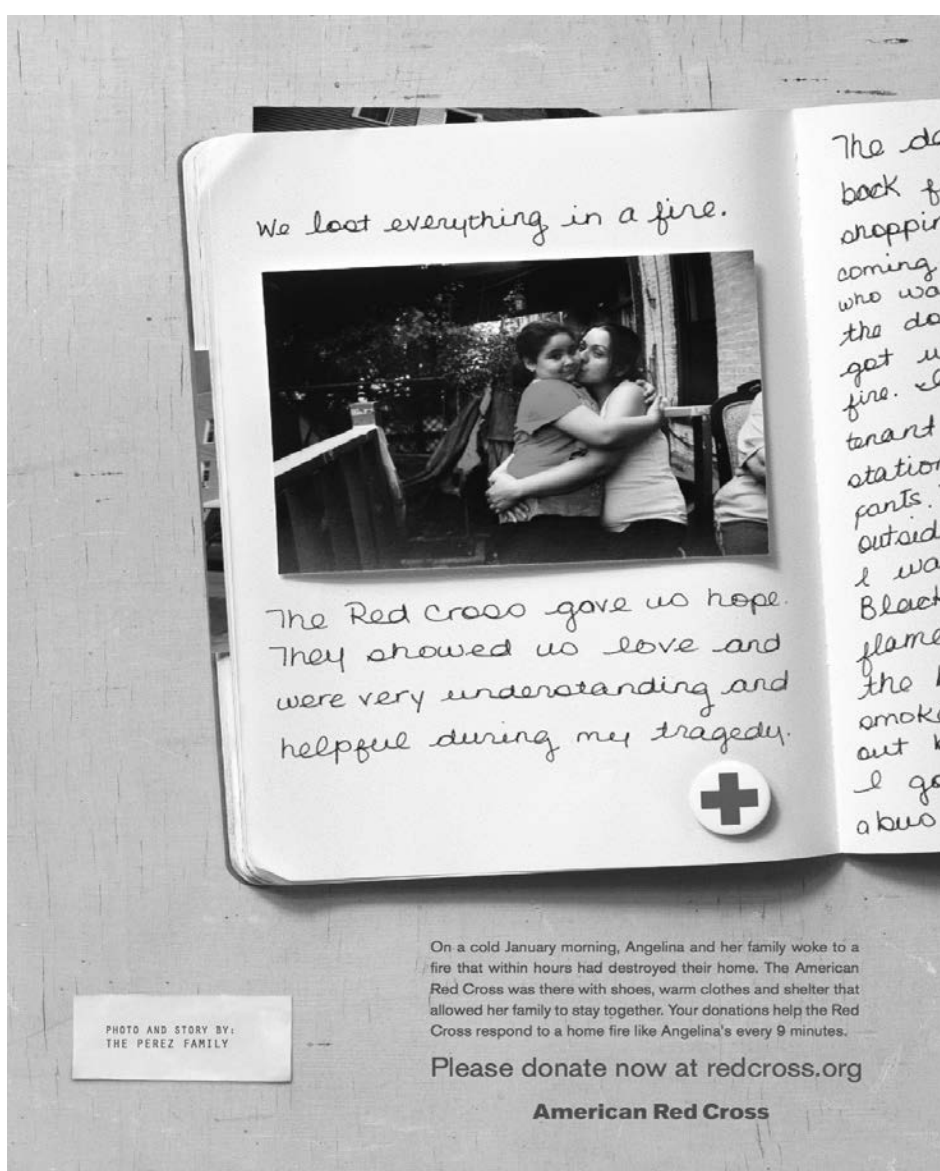 We lost everything in a fire.
The Red Cross gave us hope.
They showed us love and
were very understanding and
helpful during my tragedy.
The da
back f
shoppin
coming
who wa
the do
got
fire. I
tenant
station
pants.
outsid
I wa
Black
flame
the
smoke
out
I go
abus
On a cold January morning, Angelina and her family woke to a
fire that within hours had destroyed their home. The American
Red Cross was there with shoes, warm clothes and shelter that
allowed her family to stay together. Your donations help the Red
Cross respond to a home fire like Angelina's every 9 minutes.
Please donate now at redcross.org
American Red Cross
PHOTO AND STORY BY:
THE PEREZ FAMILY